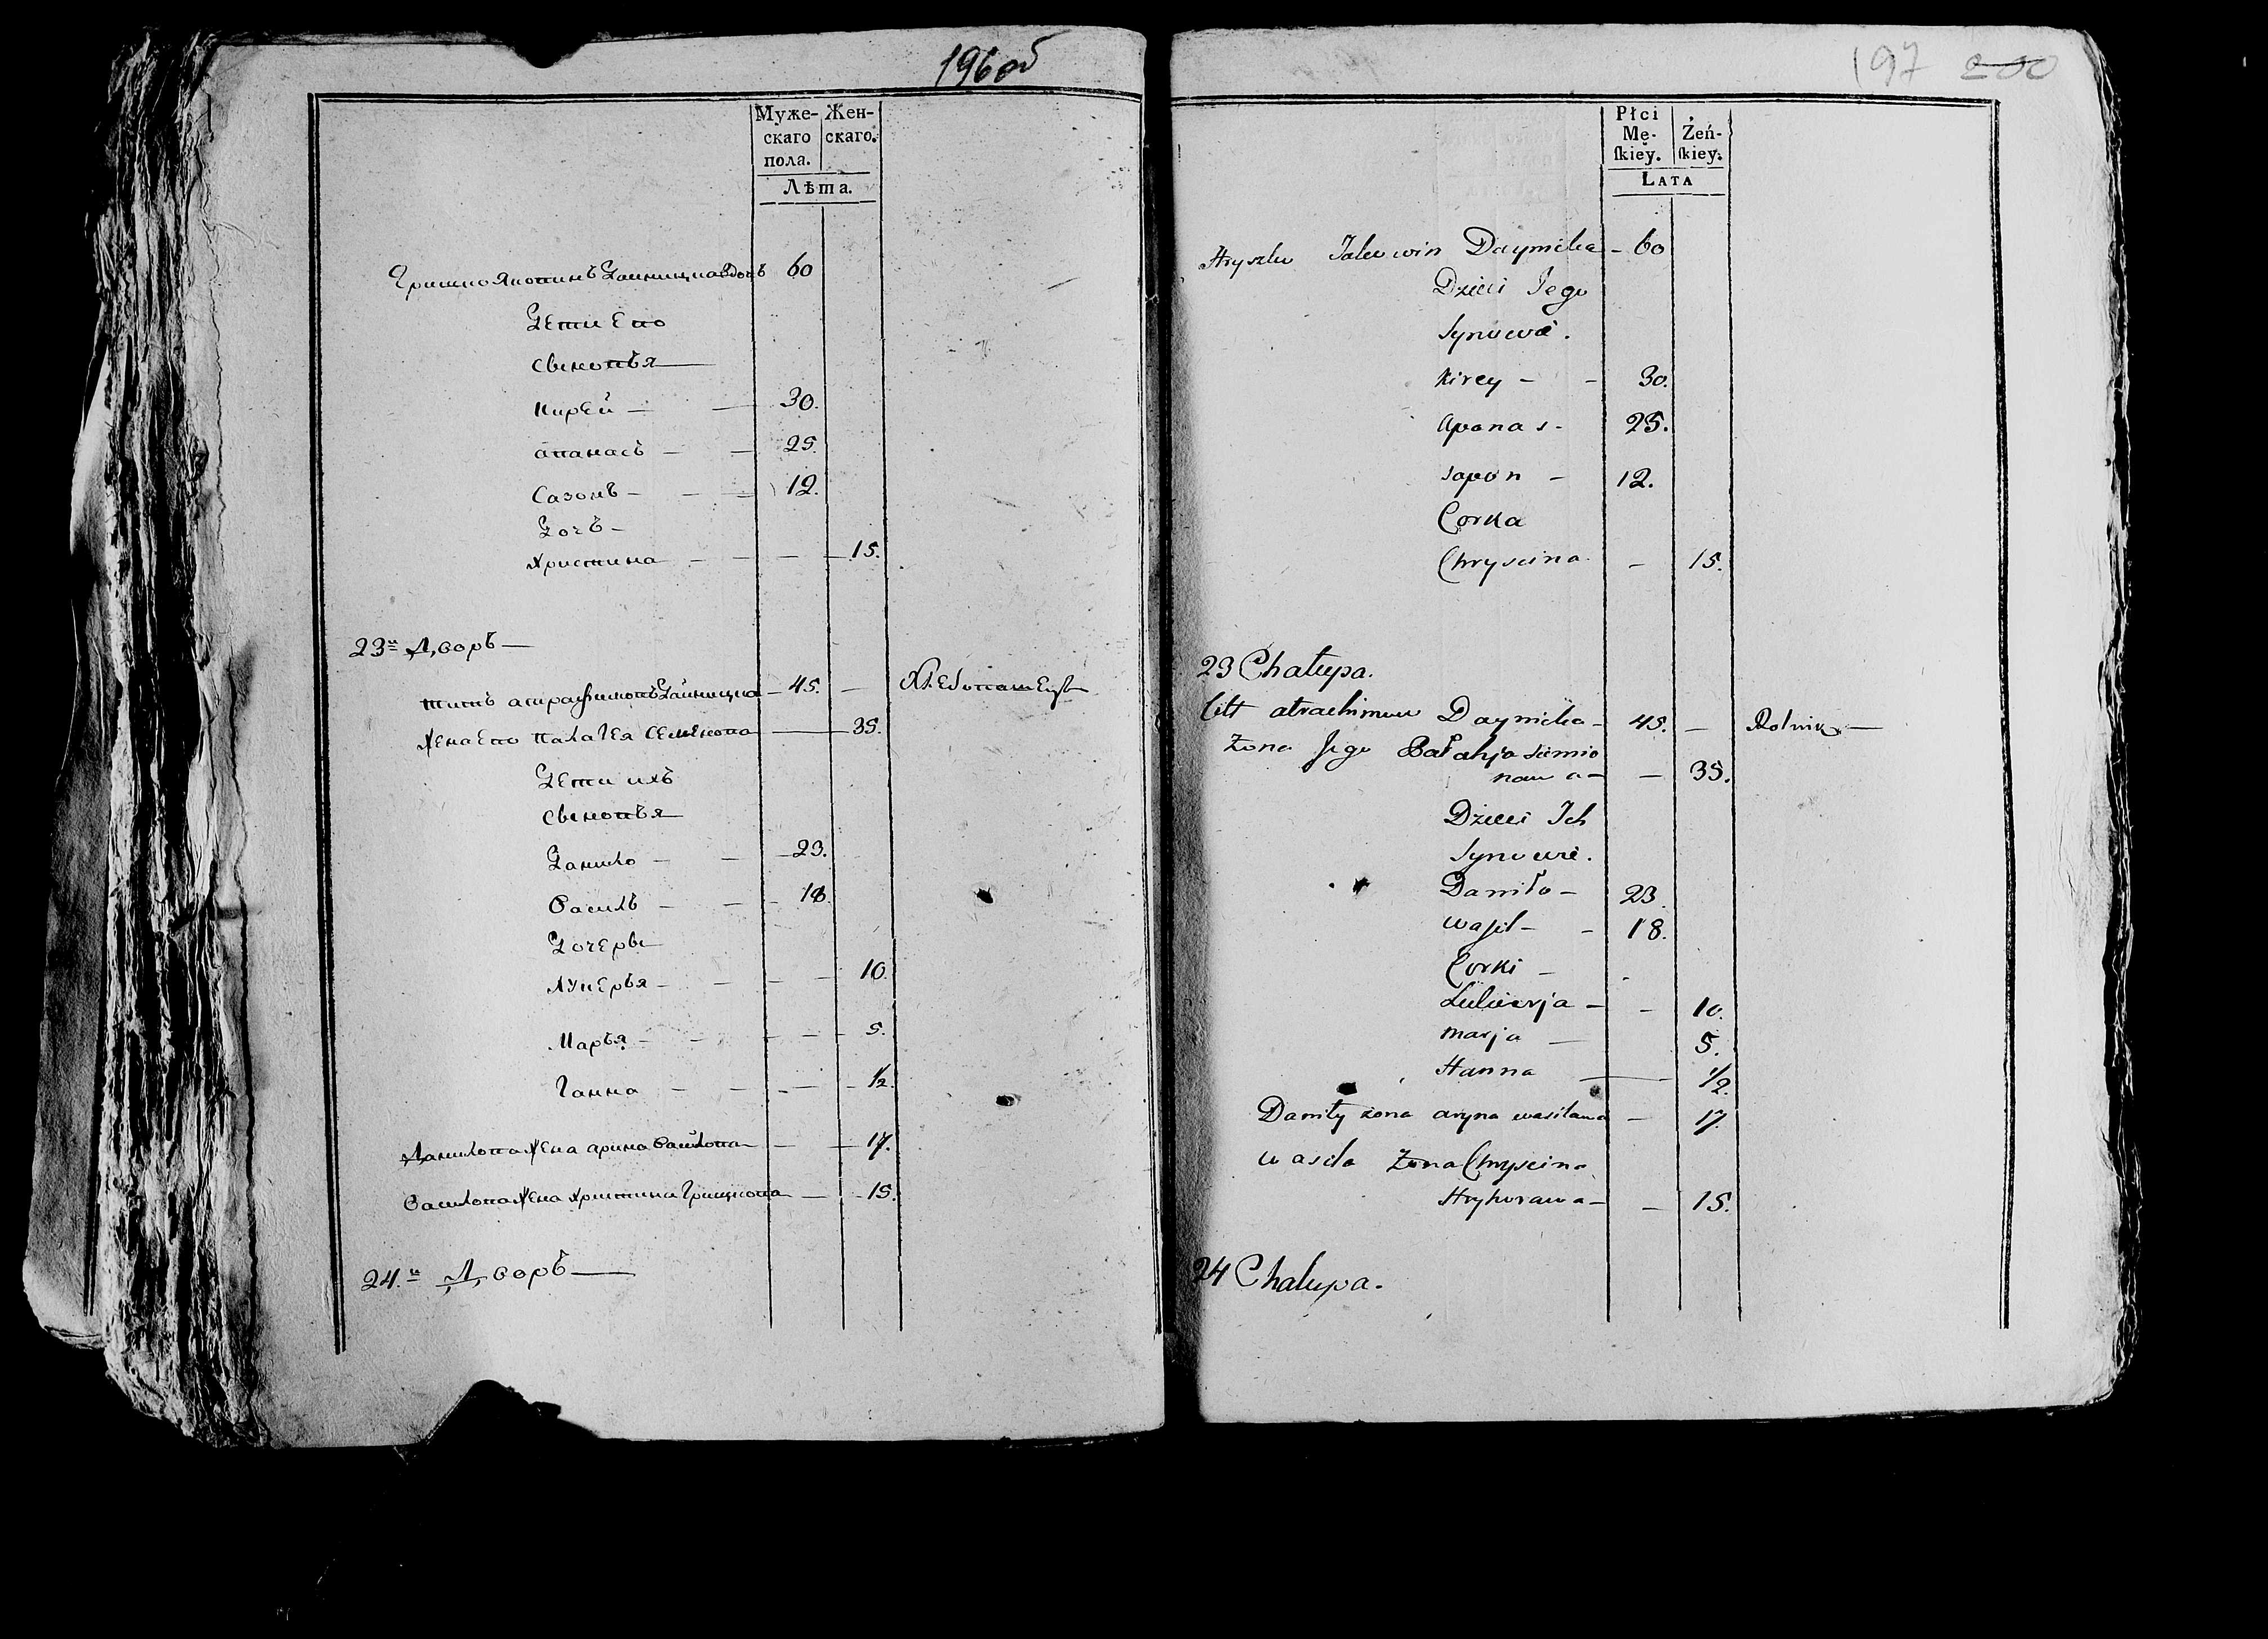 196об
Муже- Жен-
скаго скаго.
пола.
Лѣта.
60
Дети Ево
Сыновья
Кирей — 30.
апанасъ — 25.
Сазонъ — 12.
Дочь —
Христина — 15.
23й Дворъ —
титъ Дайницка — 45. —
Жена Ево Палагея Семенова — 35.
Дети ихъ
Сыновья
Данило — 23.
Василь — 18.
Дочеры
Лукерья — 10.
Марья — 5.
Ганна — 1/2.
Данилова Жена арина Василова — 17.
Василова Жена Христина Грицкова — 15.
24.й Дворъ —
197 200
Płci
Mę- Żeń-
ſkiey. ſkiey.
LATA
Hryszko Daynicka — 60
Dzieci Jego
Synowie.
Kirey — 30.
apanas — 25.
sapon — 12.
Corka
Chryscina — 15.
23 Chałupa.
Daynicka — 45. — Rolnik —
Żona Jego Pałahja Siemio
nawa — 35.
Dzieci Ich
Synowie.
Daniło — 23.
wasil — 18.
Corki —
Łukierja — 10.
marja — 5.
Hanna — 1/2.
Daniły żona aryna wasilawa — 17.
wasila Żona Chryscina
Hryhorawa — 15.
24 Chałupa.